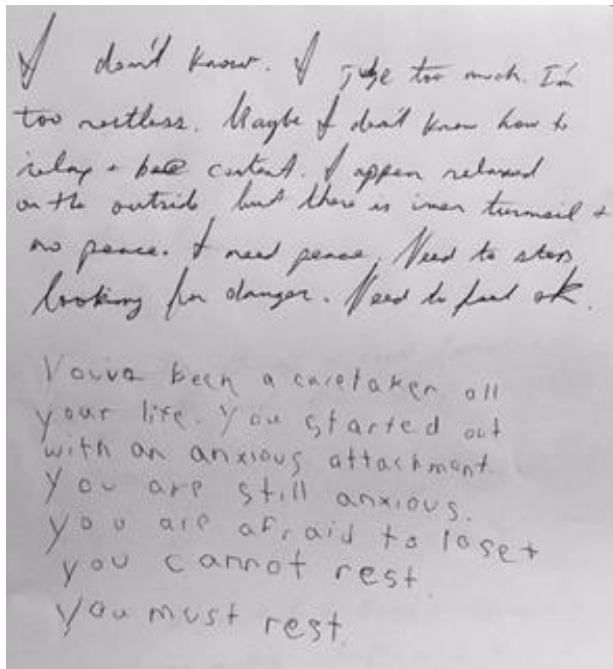 I don't know. I judge too much. I'm
too restless. Maybe I don't know how to
relax + be content. I appear relaxed
on the outside but there is inner turmoil +
no peace. I need peace. Need to stop
looking for danger. Need to feel ok.
You've been a caretaker all
your life. You started out
with an anxious attachment.
You are still anxious.
you are afraid to lose +
you cannot rest.
You must rest.